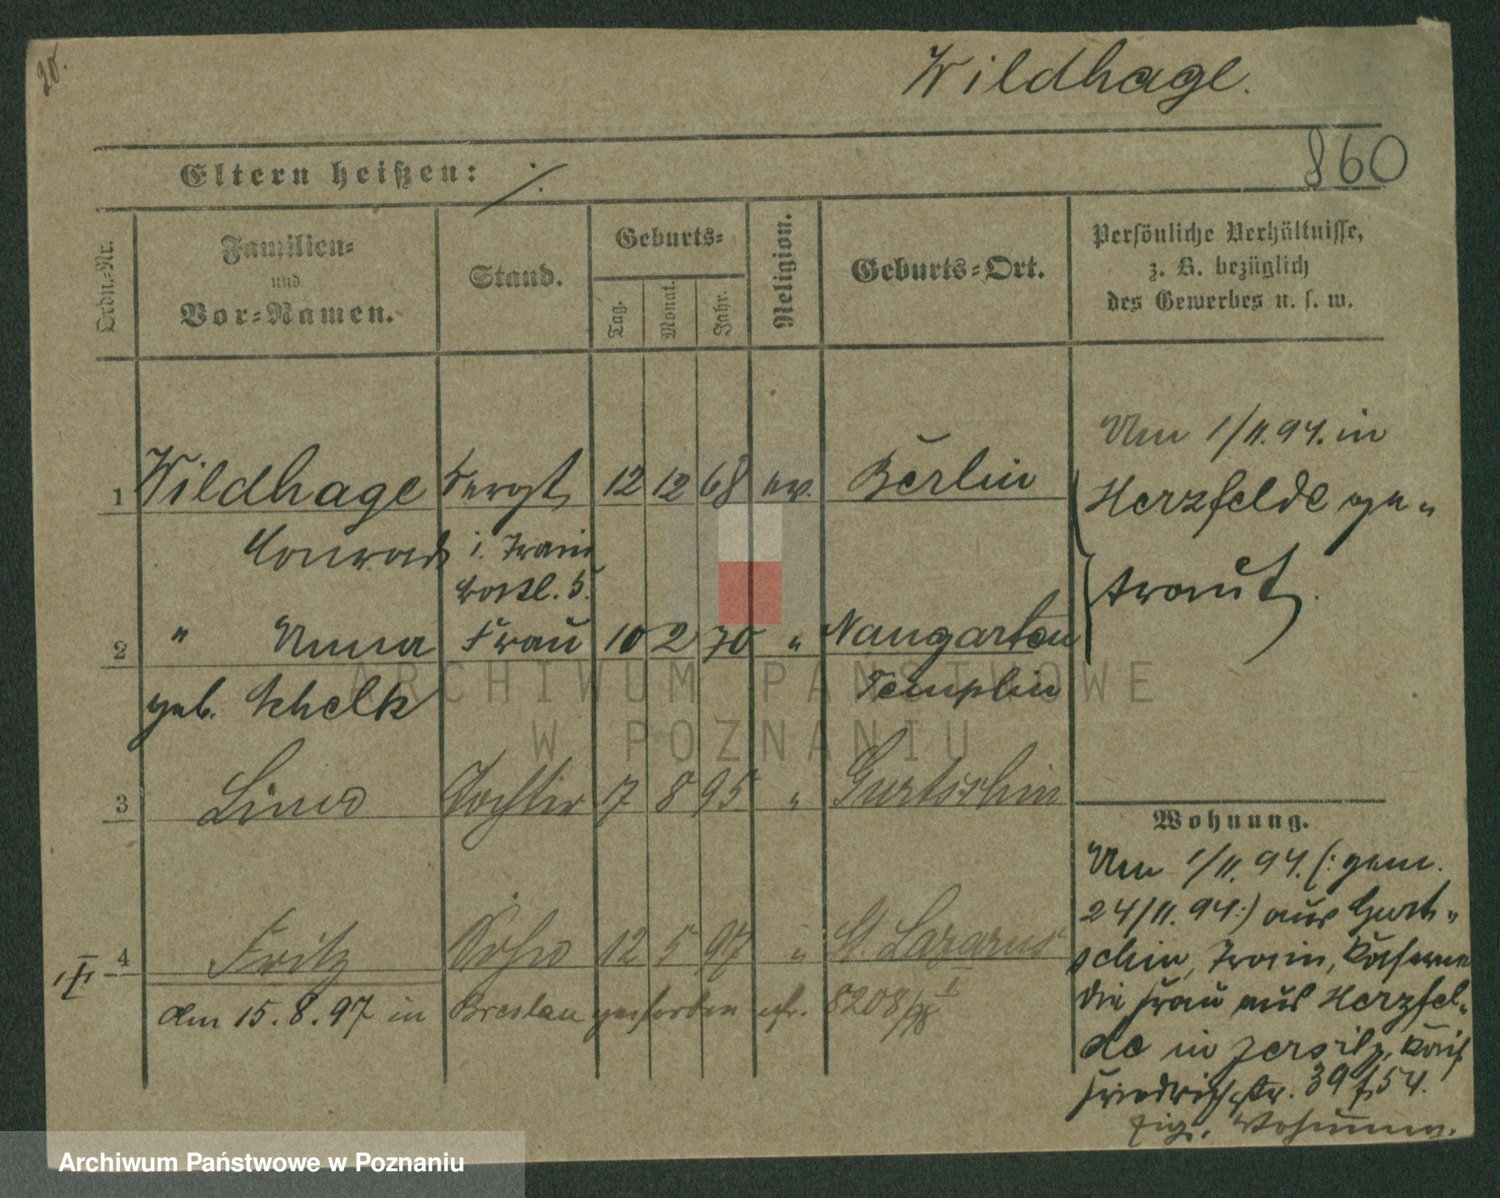 20.
Wildhage.
860
Eltern heißen: ·/.
Ordn.-Nr.
Familien-
und
Vor-Namen.
Stand.
Geburts-
Tag.
Monat.
Jahr.
Religion.
Geburts-Ort.
Persönliche Verhältnisse,
z. B. bezüglich
des Gewerbes u. s. w.
1 Wildhage Sergt. 12 12 68 ev. Berlin
Konrad i. Train
Batl. 5.
2 " Anna Frau 10 2 70 " Naugarten
geb. Schelk Templin
3 Lina Tochter 17 8 95 " Gurtschin
4 Fritz Sohn 12 5 97 " St. Lazarus
den 15.8.97 in Breslau gestorben cfr. 8208/98 I
Am 1/11.94. in
Herzfelde ge-
traut.
Wohnung.
Am 1/11.94. (: gem.
24/11.94:) aus Gurt-
schin, Train, Kaserne
die Frau aus Herzfel-
de in Jersitz, Kais
Friedrichstr. 39 f. 54.
Eig. Wohnung.
ARCHIWUM PAŃSTWOWE
W POZNANIU
Archiwum Państwowe w Poznaniu